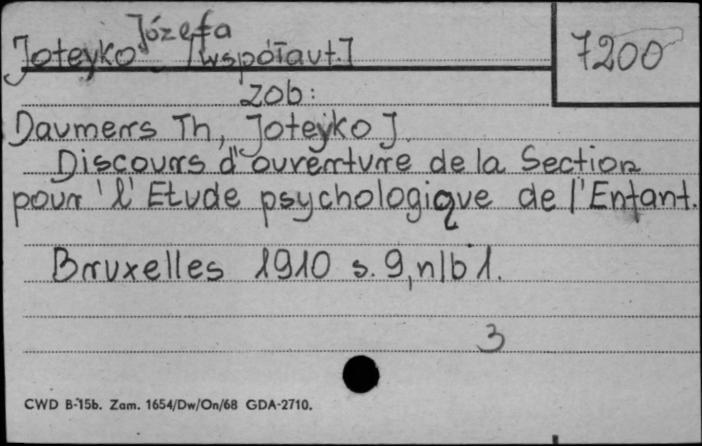 Józefa
Joteyko [współaut.]
7200
zob:
Daumers Th, Joteyko J.
Discours d'ouverture de la Section
pour l'Etude psychologique de l'Enfant.
Bruxelles 1910 s. 9, nlb 1.
3
CWD B-15b. Zam. 1654/Dw/On/68 GDA-2710.